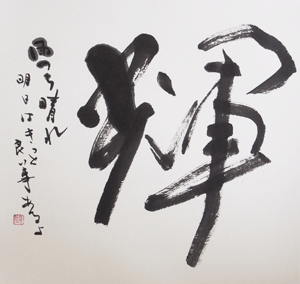 輝
雨のち晴れ
明日はきっと
良い事あるよ